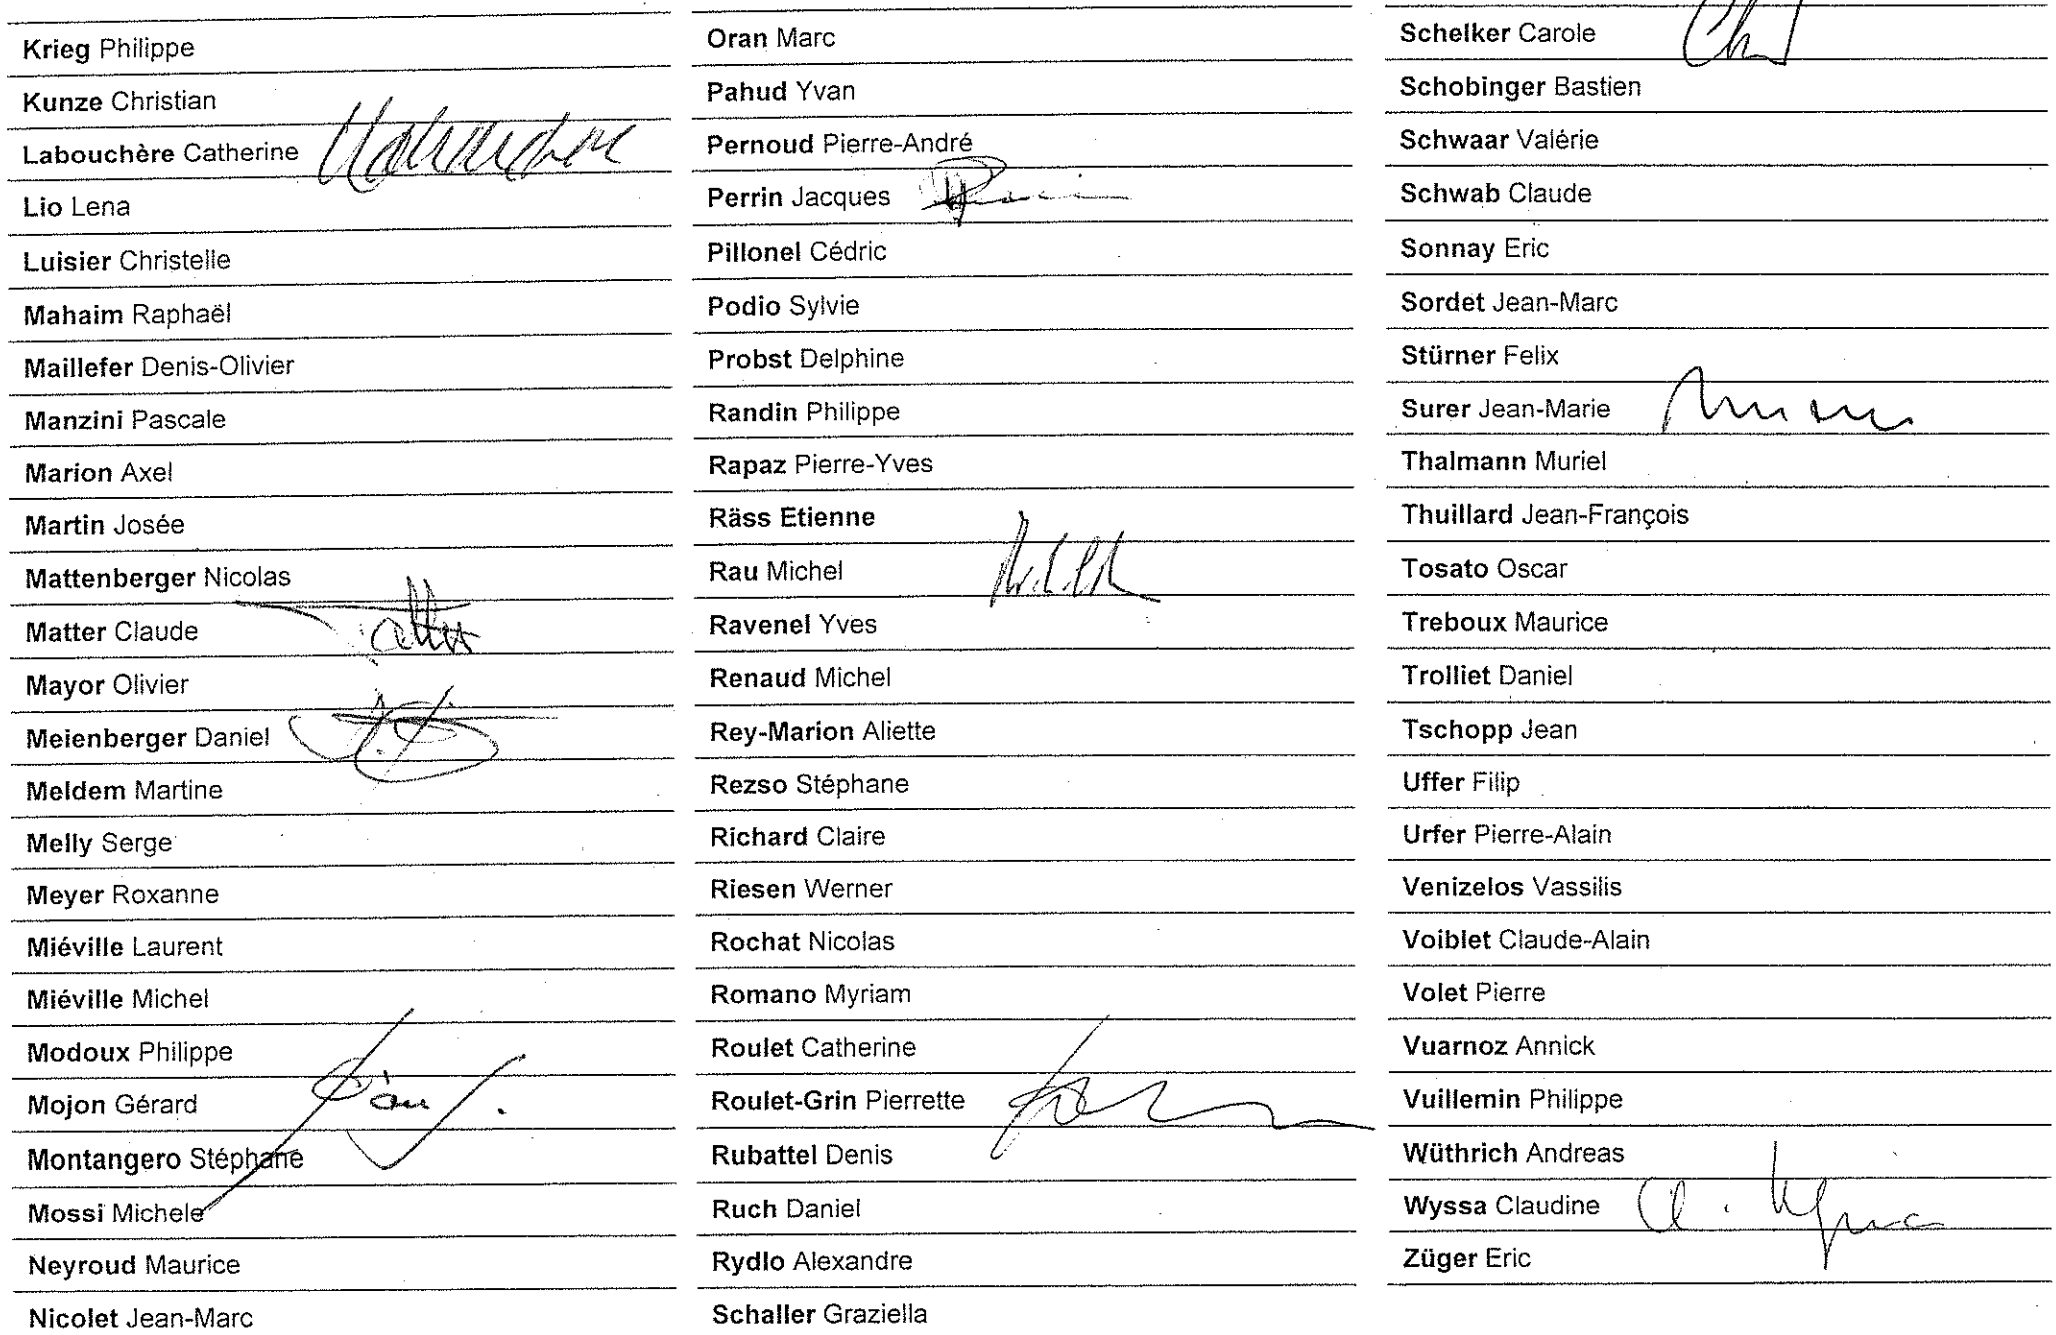 Krieg Philippe
Kunze Christian
Labouchère Catherine
Lio Lena
Luisier Christelle
Mahaim Raphaël
Maillefer Denis-Olivier
Manzini Pascale
Marion Axel
Martin Josée
Mattenberger Nicolas
Matter Claude
Mayor Olivier
Meienberger Daniel
Meldem Martine
Melly Serge
Meyer Roxanne
Miéville Laurent
Miéville Michel
Modoux Philippe
Mojon Gérard
Montangero Stéphane
Mossi Michele
Neyroud Maurice
Nicolet Jean-Marc
Oran Marc
Pahud Yvan
Pernoud Pierre-André
Perrin Jacques
Pillonel Cédric
Podio Sylvie
Probst Delphine
Randin Philippe
Rapaz Pierre-Yves
Räss Etienne
Rau Michel
Ravenel Yves
Renaud Michel
Rey-Marion Aliette
Rezso Stéphane
Richard Claire
Riesen Werner
Rochat Nicolas
Romano Myriam
Roulet Catherine
Roulet-Grin Pierrette
Rubattel Denis
Ruch Daniel
Rydlo Alexandre
Schaller Graziella
Schelker Carole
Schobinger Bastien
Schwaar Valérie
Schwab Claude
Sonnay Eric
Sordet Jean-Marc
Stürner Felix
Surer Jean-Marie
Thalmann Muriel
Thuillard Jean-François
Tosato Oscar
Treboux Maurice
Trolliet Daniel
Tschopp Jean
Uffer Filip
Urfer Pierre-Alain
Venizelos Vassilis
Voiblet Claude-Alain
Volet Pierre
Vuarnoz Annick
Vuillemin Philippe
Wüthrich Andreas
Wyssa Claudine
Züger Eric